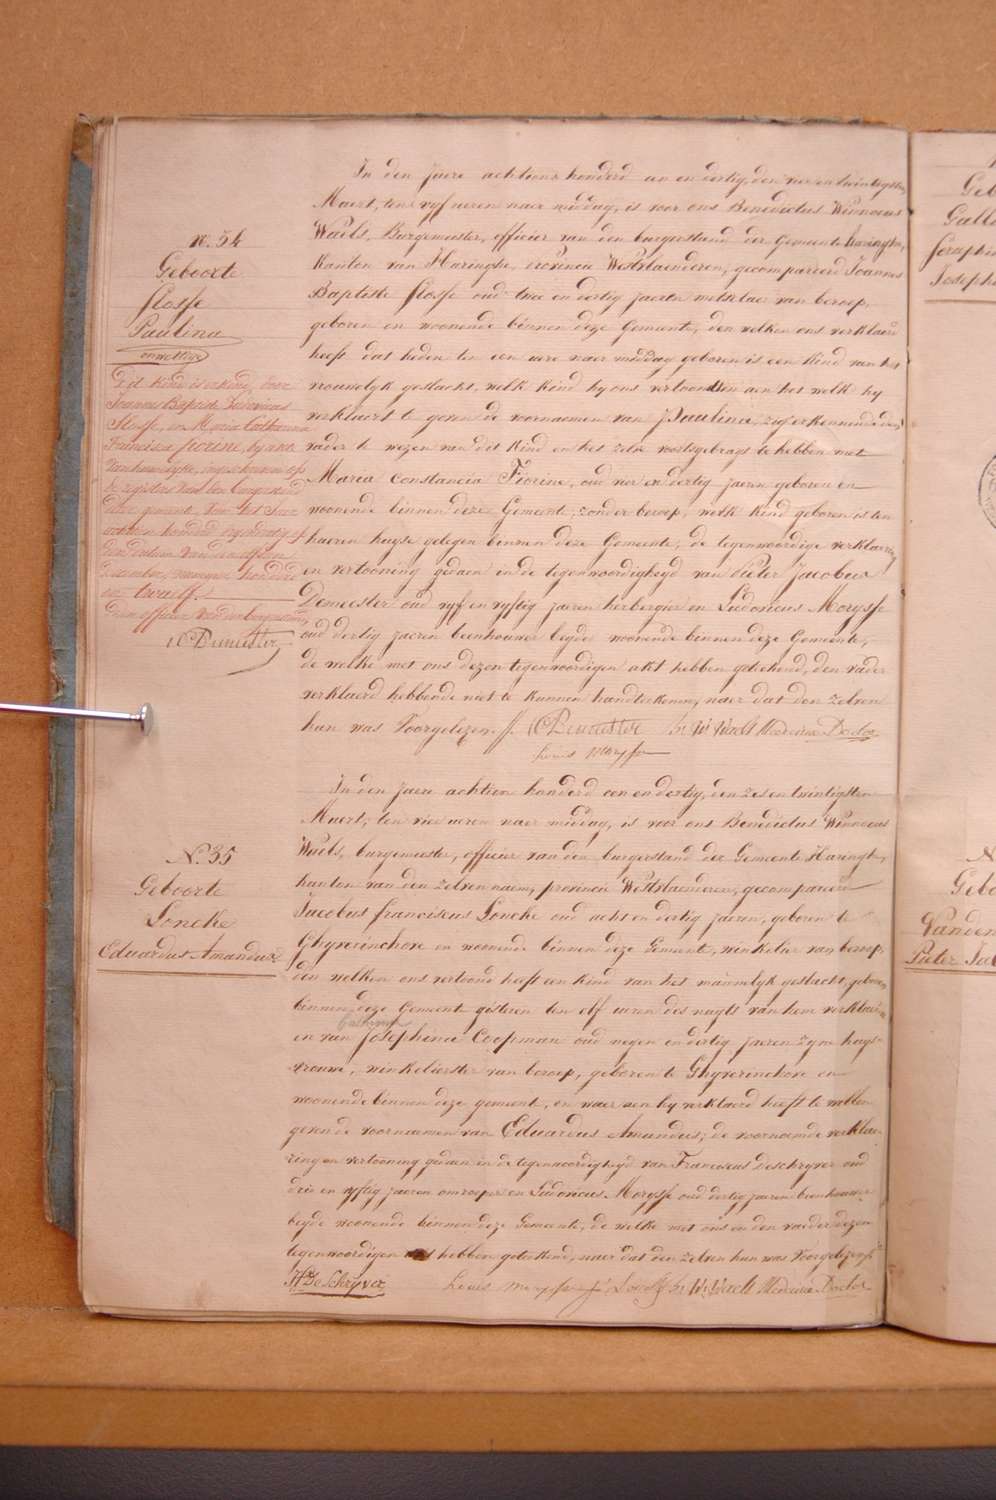 n. 34
Geboorte
Flosse
Paulina
onwettige
Dit kind is erkend door
Joannes Baptiste Ludovicus
Flosse, en Maria Constancia
Francisca Fiorine, by akte
van huwelyk, ingeschreven op
de registers van den burgerstand
dezer gemeente, voor het jaer
achttien honderd
December, honderd
en twaelf.
Den officier van den burgerstand,
Demeester
In den jaere achttien honderd een en dertig, den vier en twintigsten
Maert, ten vyf ueren naer middag, is voor ons Benedictus Winnocus
Waels, Burgemeester, officier van den burgerstand der Gemeente Haringhe,
Kanton van Haringhe, provincie Westvlaenderen, gecompareerd Joannes
Baptiste Flosse oud twee en dertig jaeren melker van beroep,
geboren en woonende binnen deze Gemeente, den welken ons verklaerd
heeft dat heden ten een uere naer middag geboren is een kind van het
vrouwelyk geslacht, welk kind hy ons vertoond en aen het welk hy
verklaert te geven de voornaemen van Paulina, zig erkennende den
vader te wezen van dit kind en het zelve voortsgebragt te hebben met
Maria Constancia Fiorine, oud vier en dertig jaeren geboren en
woonende binnen deze Gemeente, zonder beroep, welk kind geboren is ten
haeren huyse gelegen binnen deze Gemeente, de tegenwoordige verklaering
en vertooning gedaen in de tegenwoordigheyd van Pieter Jacobus
Demeester oud vyf en vyftig jaeren herbergier en Ludovicus Morysse
oud dertig jaeren beenhouwer beyde woonende binnen deze Gemeente,
de welke met ons dezen tegenwoordigen akt hebben geteekend, den vader
verklaerd hebbende niet te kunnen handteekenen, naer dat den zelven
hun was voorgelezen. Demeester W Waels Medecinae Doctor
Louis Morysse
N. 35
Geboorte
Loncke
Eduardus Amandus
In den jaere achttien honderd een en dertig, den zes en twintigsten
Maert, ten vier ueren naer middag, is voor ons Benedictus Winnocus
Waels, burgemeester, officier van den burgerstand der Gemeente Haringhe,
kanton van den zelven naem, provincie Westvlaenderen, gecompareerd
Jacobus Franciscus Loncke oud acht en dertig jaeren, geboren te
Ghyverinchove en woonende binnen deze Gemeente, winkelier van beroep,
den welken ons vertoond heeft een kind van het mannelyk geslacht, geboren
binnen deze Gemeente gisteren ten elf ueren des nagts van hem verklaerder
en van Josephina Coopman oud negen en dertig jaeren zyne huys-
vrouwe, winkelierster van beroep, geboren te Ghyverinchove en
woonende binnen deze gemeente, en waer aen hy verklaerd heeft te willen
geven de voornaemen van Eduardus Amandus; de voornoemde verklae-
ring en vertooning gedaen in de tegenwoordigheyd van Franciscus Deschryver oud
drie en vyftig jaeren omroeper en Ludovicus Morysse oud dertig jaeren beenhouwer
beyde woonende binnen deze Gemeente, de welke met ons en den vaeder dezen
tegenwoordigen hebben geteekend, naer dat den zelven hun was voorgelezen
De Schryver Louis Morysse Loncke W Waels Medecinae Doctor
Geb
Gall
Seraphi
Joseph
N
Gebo
Vanden
Pieter Ja